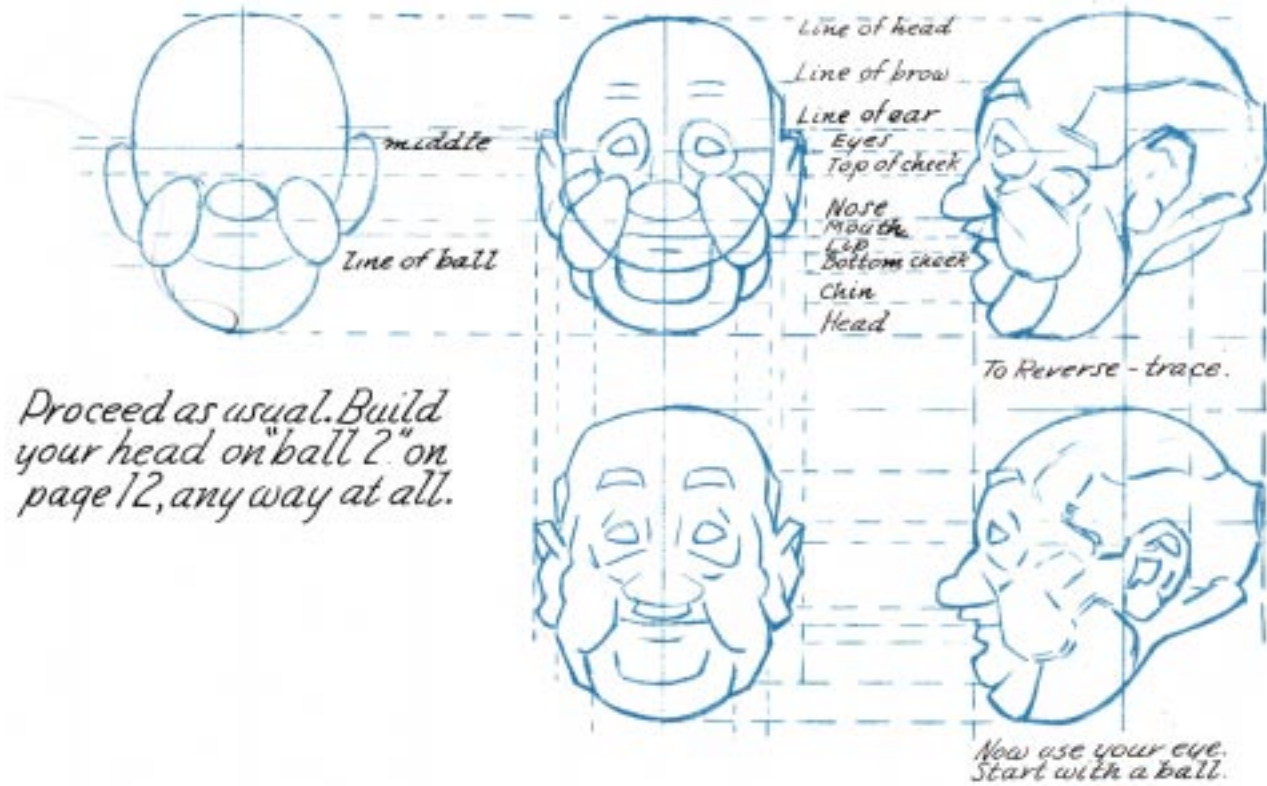 Line of head
Line of brow
Line of ear
middle
Eyes
Top of cheek
Nose
Mouth
Lip
Line of ball
Bottom cheek
Chin
Head
To Reverse - trace.
Proceed as usual. Build
your head on "ball 2" on
page 12, any way at all.
Now use your eye.
Start with a ball.